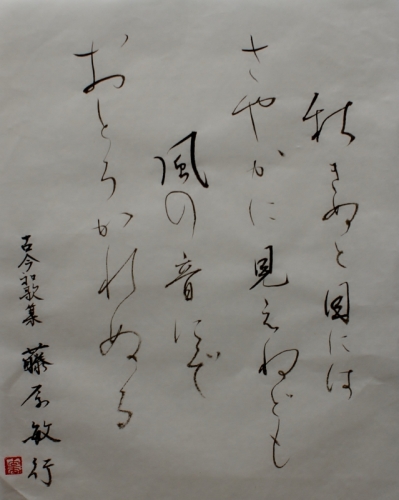 秋きぬと目には
さやかに見えねども
風の音にぞ
おとろかれぬる
古今和歌集 藤原敏行